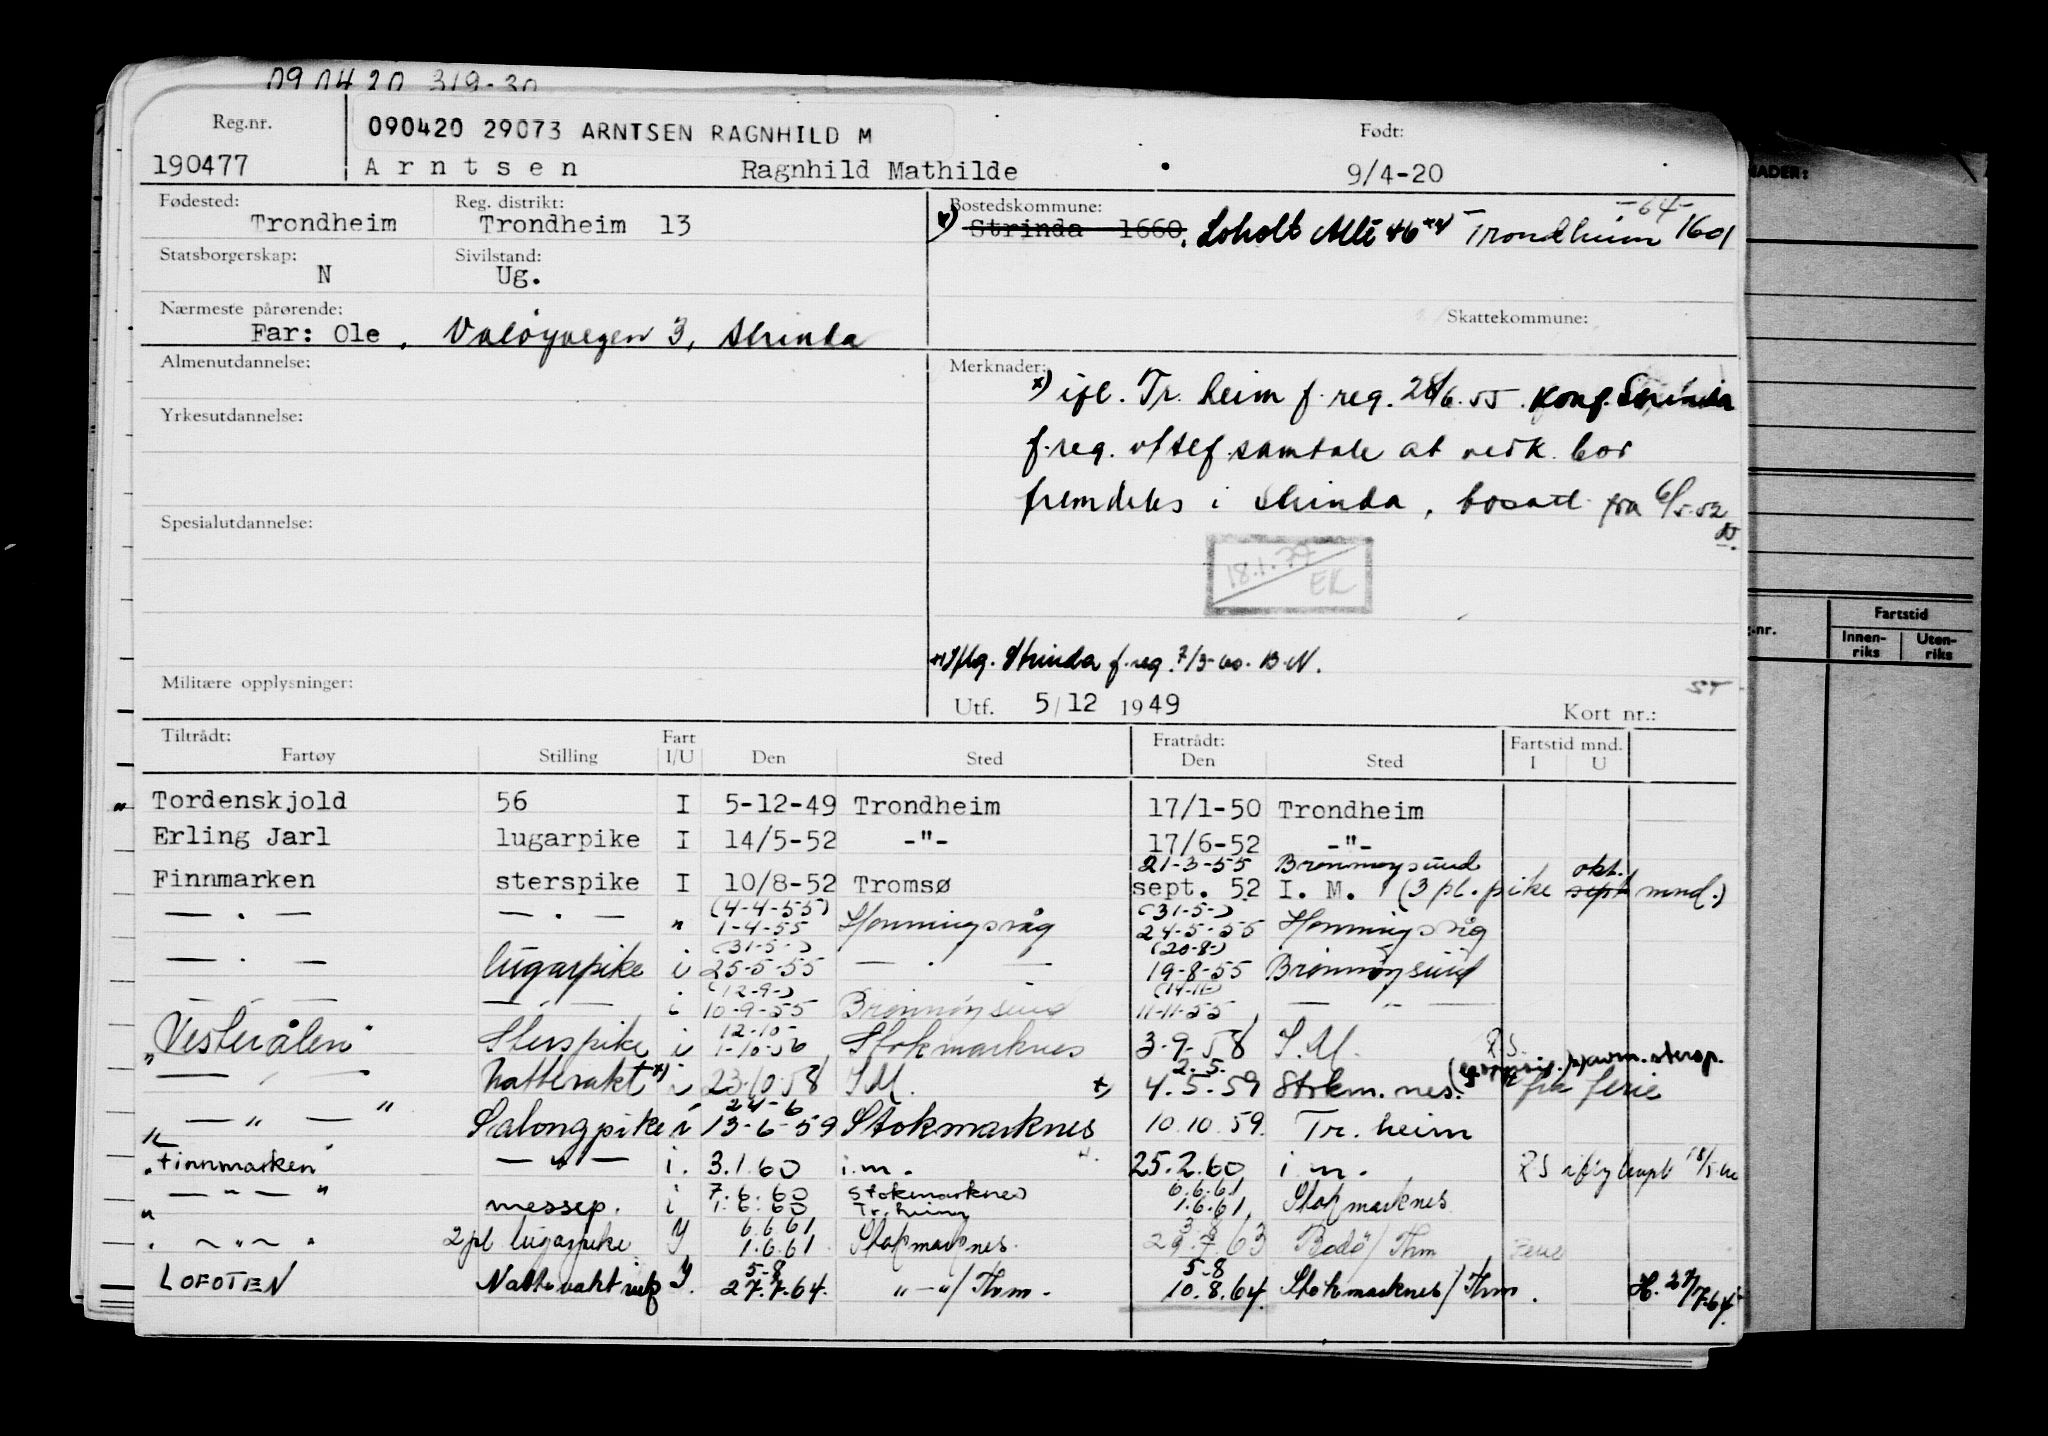 090420 319-30
Reg.nr.
090420 29073 ARNTSEN RAGNHILD M
Født:
190477 Arntsen Ragnhild Mathilde 9/4-20
Fødested: Reg. distrikt: Bostedskommune:
Trondheim Trondheim 13 Strinda 1660, Loholt Allé 46 Trondheim -64- 1601
Statsborgerskap: Sivilstand:
N Ug.
Nærmeste pårørende: Skattekommune:
Far: Ole, Valøyvegen 3, Strinda
Almenutdannelse: Merknader:
x) ifl. Tr.heim f.reg. 28/6.55. Konf. Strinda
Yrkesutdannelse:
f.reg. v/telf.samtale at vedk. bor
fremdeles i Strinda, bosatt fra 6/5.52
Spesialutdannelse:
18.1.77 EK
Iflg. Strinda f.reg. 7/3-60. B.N.
Militære opplysninger:
Utf. 5/12 1949 Kort nr.:
Tiltrådt: Fart Fratrådt: Fartstid mnd.
Fartøy Stilling I/U Den Sted Den Sted I U
Tordenskjold 56 I 5-12-49 Trondheim 17/1-50 Trondheim
Erling Jarl lugarpike I 14/5-52 -"- 17/6-52 -"-
21-3-55 Brønnøysund okt.
Finnmarken sterspike I 10/8-52 Tromsø sept. 52 I. M. (3 pl. pike sept mnd.)
(4-4-55) (31-5-)
— . — — . — " 1-4-55 Honningsvåg 24-5-55 Honningsvåg
(31-5-) (20-8-)
— . — lugarpike i 25-5-55 — . — 19-8-55 Brønnøysund
(12-9-) (14-11-)
— . — — . — i 10-9-55 Brønnøysund 11-11-55 — " —
12-10-
"Vesterålen" Sterspike i 1-10-56 Stokmarknes 3-9-58 I.M. P.S.
2.5.
— " — Nattevakt x) i 23.10.58 I.M. x) 4.5.59 Stokm.nes. fra ferie
24-6
— " — " Salongpike i 13-6-59 Stokmarknes 10.10.59. Tr.heim
"Finnmarken" — " — i. 3.1.60 i.m. 25.2.60 i.m.
7.6.60 Stokmarknes 6.6.61
— " — " messep. i 1.6.60 Tr.heim 1.6.61, Stokmarknes
6.6.61 3.8
" — " — " 2pl lugarpike Y 1.6.61. Stokmarknes. 29.7.63 Bodø/Thm Ferie
5-8 5-8
LOFOTEN Nattevakt Y. 27.7.64. "—"/Thm. 10.8.64. Stokmarknes/Thm. H. 27/7.64.
NADER:
Fartstid
g.nr. Innen-riks Uten-riks